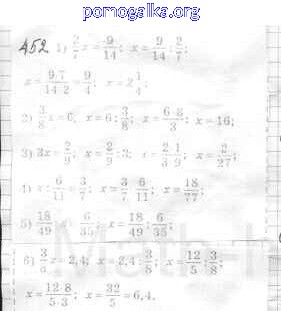 pomogalka.org
452 1) 2/7 x = 9/14; x = 9/14 : 2/7;
x = 9·7/14·2 = 9/4; x = 2 1/4;
2) 3/8 x = 6; x = 6 : 3/8; x = 6·8/3; x = 16;
3) 3x = 2/9; x = 2/9 : 3; x = 2·1/3·9; x = 2/27;
4) x : 6/11 = 3/7; x = 3/7 · 6/11; x = 18/77;
5) 18/49 : x = 6/35; x = 18/49 : 6/35;
6) 3/8 x = 2,4; x = 2,4 : 3/8; x = 12/5 : 3/8;
x = 12·8/5·3; x = 32/5 = 6,4.